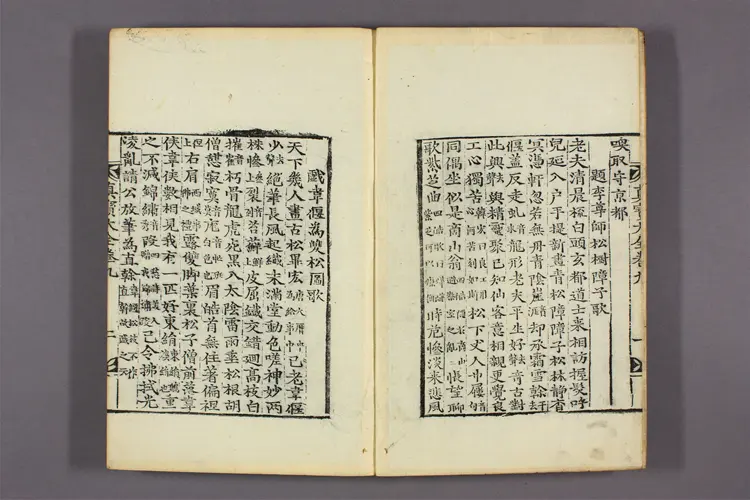 喚取守京都
題李尊師松樹障子歌
老夫清晨梳白頭玄都道士來相訪握髮呼
兒延入戶手提新畫青松障障子松林靜杳
冥憑軒忽若無丹青陰崖却承霜雪幹
偃蓋反走虬龍形老夫平生好奇古對
此興與精靈聚已知仙客意相親更覺良
工心獨苦松下丈人巾屨
同偶坐似是商山翁悵望聊
歌紫芝曲時危慘淡來悲風
真寶大全卷九
一
戲韋偃為雙松圖歌
天下幾人畫古松畢宏唐大曆中為給事中已老韋偃
少絕筆長風起纖末滿堂動色嗟神妙兩
株慘裂苔蘚皮屈鐵交錯廻高枝白
摧朽骨龍虎死黑入太陰雷雨垂松根胡
僧憩寂寞龐眉皓首無住著偏袒
右肩露雙脚葉裏松子僧前落韋
侯韋侯數相見我有一匹好東絹重
之不減錦繡段已令拂拭光
凌亂請公放筆為直幹
真寶大全卷九
二